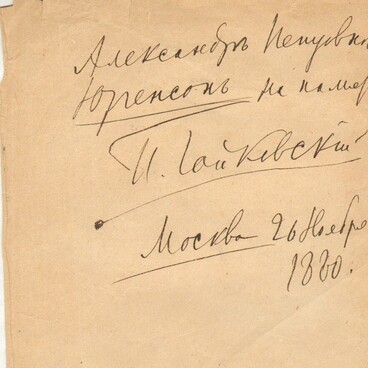 Александръ Петровн
Юргенсонъ на памя
П. Чайковскій
Москва 26 Ноябре
1880.